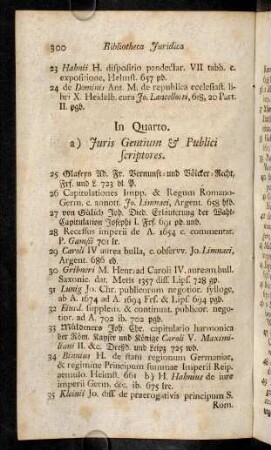 300 Bibliotheca Juridica
23 Hahnii H. dispositio pandectar. VII tabb. c.
expositione, Helmst. 657 pb.
24 de Dominis Ant. M. de republica ecclesiast. li-
bri X. Heidelb. cura Jo. Lancelloti, 618, 20 Part.
II. pgb.
In Quarto.
a) Juris Gentium & Publici
scriptores.
25 Glafeys Ad. Fr. Vernunft- und Völcker-Recht,
Frf. und L. 723 bl. P.
26 Capitulationes Impp. & Regum Romano-
Germ. c. annott. Jo. Limnaei, Argent. 658 hfb
27 von Gülich Joh. Died. Erläuterung der Wahl-
Capitulation Josephi I. Frf. 691 pb. und.
28 Recessus imperii de A. 1654 c. commentar.
P. Gamsii 701 br.
29 Caroli IV aurea bulla, c. observv. Jo. Limnaei,
Argent. 686 eb
30 Gribneri M. Henr. ad Caroli IV. auream bull.
Saxonic. dat. Metis 1357 diss. Lips. 728 gp.
31 Lunig Jo Chr. publicorum negotior. sylloge,
ab A. 1674 ad A. 1694 Frf. & Lips. 694 pgb.
32 Eiusd. supplem. & continuat. publicor. nego-
tior. ad A. 702 ib. 702 pgb.
33 Müldeners Joh. Chr. capitulatio harmonica
der Röm. Kayser und Könige Caroli V. Maximi-
liani II. &c. Dreßd. und Leipz 725 wb.
34 H. de statu regionum Germaniae,
& regimine Principum summae Imperii Reip.
aemulo. Helmst. 661 b) H. Hahnius de iure
imperii Germ. &c. ib. 675 br.
35 Kleinii Jo. diss. de praerogativis principum S.
Rom.